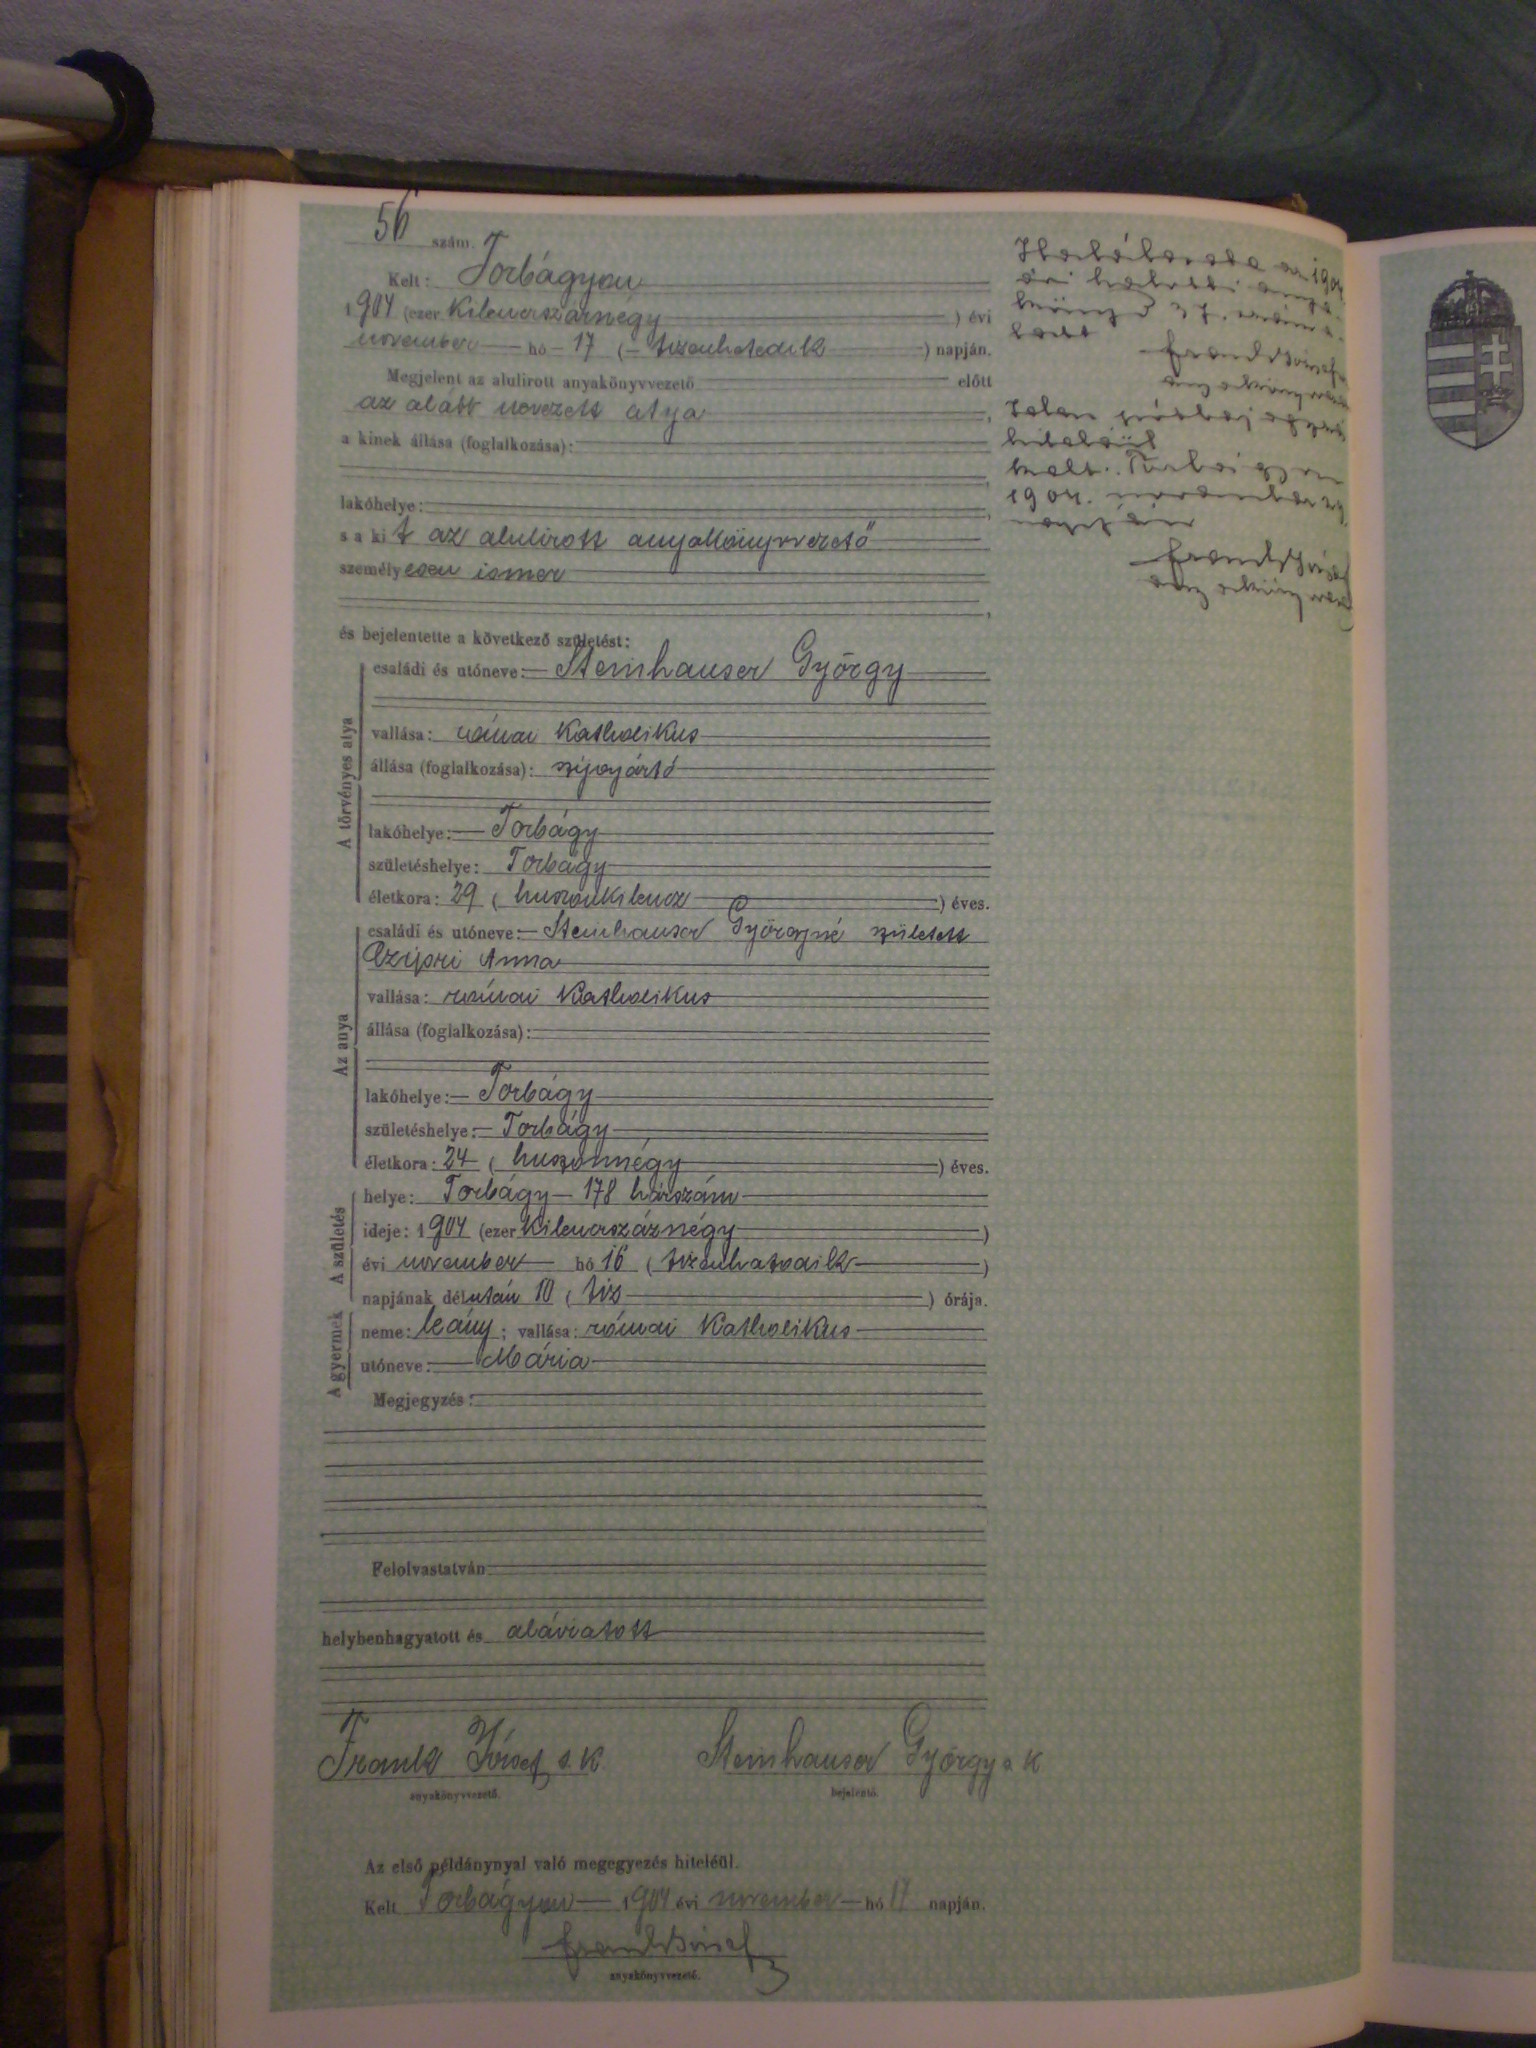 56 szám.
Kelt: Torbágyon
1904 (ezer kilencszáznégy ) évi
november hó 17 ( tizenhetedik ) napján.
Megjelent az alulirott anyakönyvvezető előtt
az alább nevezett atya ,
a kinek állása (foglalkozása):
lakóhelye:
s a ki t az alulirott anyakönyvvezető
személyesen ismer
és bejelentette a következő születést:
A törvényes atya
családi és utóneve: Steinhauser György
vallása: római katholikus
állása (foglalkozása): szijgyártó
lakóhelye: Torbágy
születéshelye: Torbágy
életkora: 29 ( huszonkilencz ) éves.
Az anya
családi és utóneve: Steinhauser Györgyné született
Czipri Anna
vallása: római katholikus
állása (foglalkozása):
lakóhelye: Torbágy
születéshelye: Torbágy
életkora: 24 ( huszonnégy ) éves.
A születés
helye: Torbágy 178 házszám
ideje: 1904 (ezer kilencszáznégy )
évi november hó 16 ( tizenhatodik )
napjának délután 10 ( tiz ) órája.
A gyermek
neme: leány ; vallása: római katholikus
utóneve: Mária
Megjegyzés:
Felolvastatván
helybenhagyatott és aláiratott
Frank József s. k. Steinhauser György s k
anyakönyvvezető. bejelentő.
Az első példánynyal való megegyezés hiteléül.
Kelt Torbágyon 1904 évi november hó 17 napján.
Frank József
anyakönyvvezető.
az 1904
évi halotti
37. szám
Frank József
hiteléül
Kelt. Torbágyon
1904. november
napján
Frank József